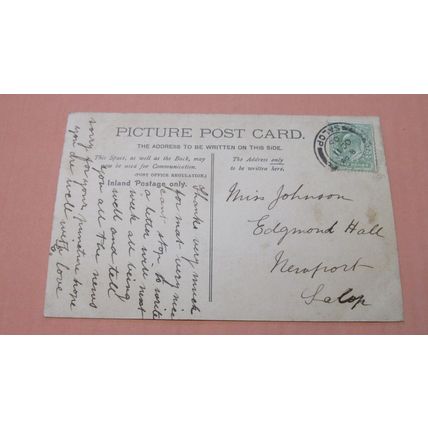 PICTURE POST CARD.
THE ADDRESS TO BE WRITTEN ON THIS SIDE.
This Space, as well as the Back, may
now be used for Communication.
(POST OFFICE REGULATION.)
Inland Postage only.
The Address only
to be written here.
Miss Johnson
Edgmond Hall
Newport
Salop
Thanks very much
for mat very nice
cant stop to write
a letter will next
week all being
well and tell
you all the news
sorry for your puncture hope
you are well with
love
SALOP